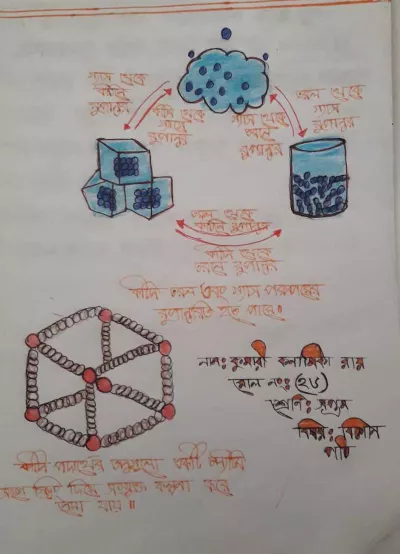 গ্যাস থেকে
কঠিনে
রূপান্তর
কঠিন থেকে
গ্যাসে
রূপান্তর
গ্যাস থেকে
তরলে
রূপান্তর
তরল থেকে
গ্যাসে
রূপান্তর
তরল থেকে
কঠিনে রূপান্তর
কঠিন থেকে
তরলে রূপান্তর
কঠিন তরল এবং গ্যাস পরস্পরে
রূপান্তরিত হতে পারে।
নাম: কুমারী রায়
রোল নং: (২৬)
শ্রেণি: সপ্তম
বিষয়: বিজ্ঞান
কঠিন পদার্থের অনুগুলো একটি
দিয়ে সংযুক্ত কল্পনা করে
যায়।